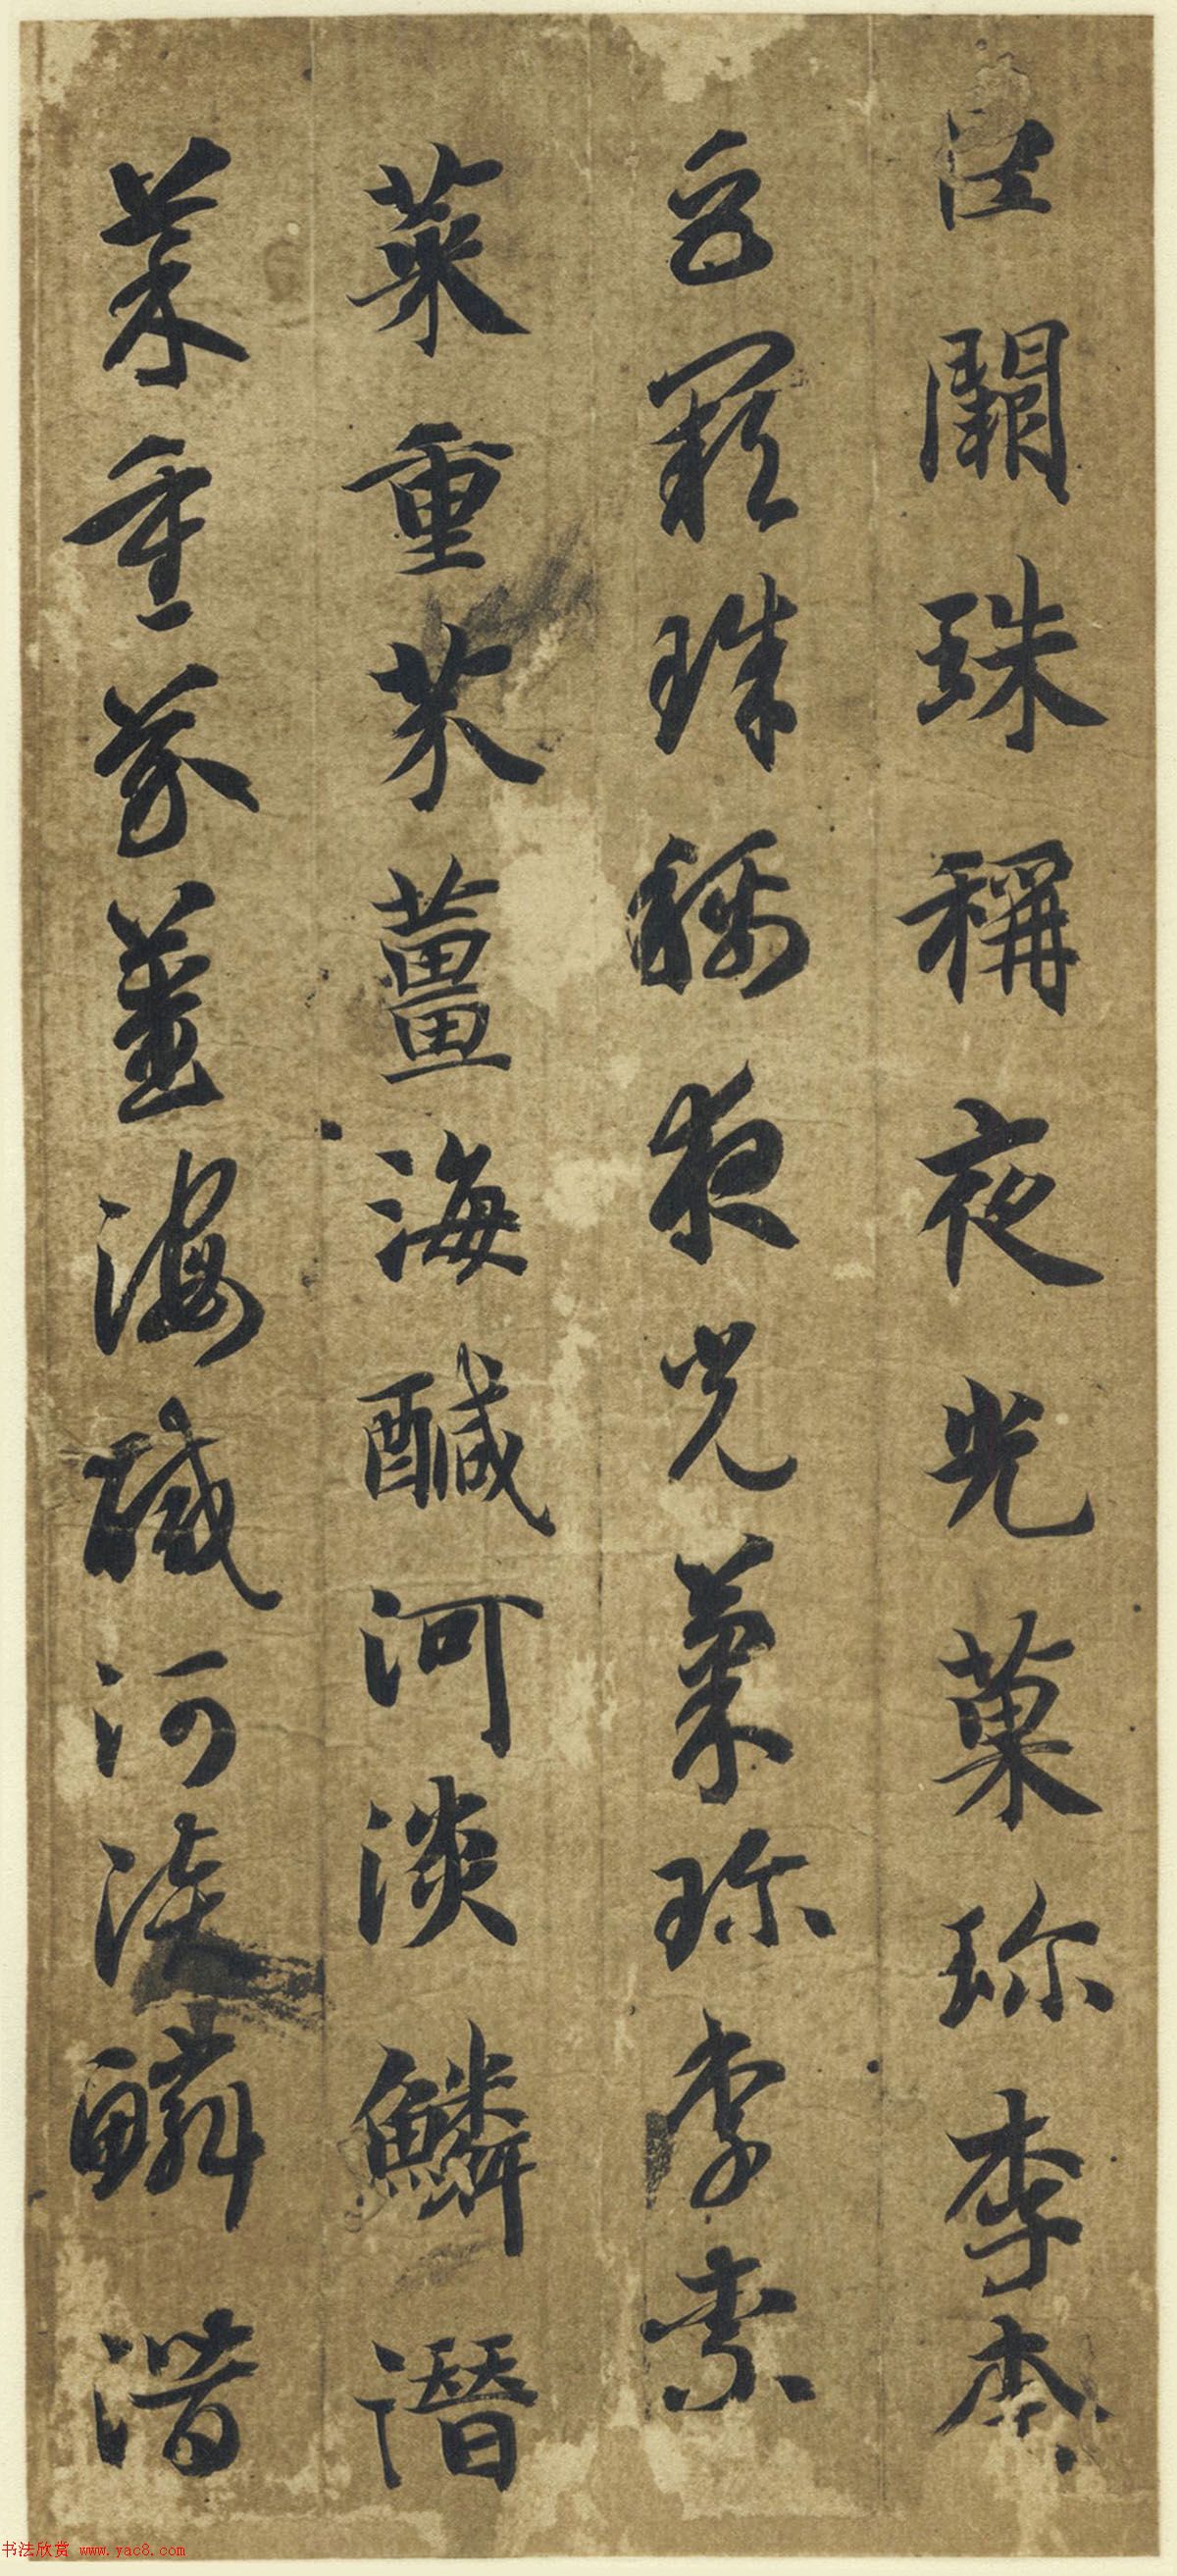 巨闕珠稱夜光菓珍李柰
巨闕珠稱夜光菓珍李柰
菜重芥薑海鹹河淡鱗潛
菜重芥薑海鹹河淡鱗潛
书法欣赏 www.yac8.com